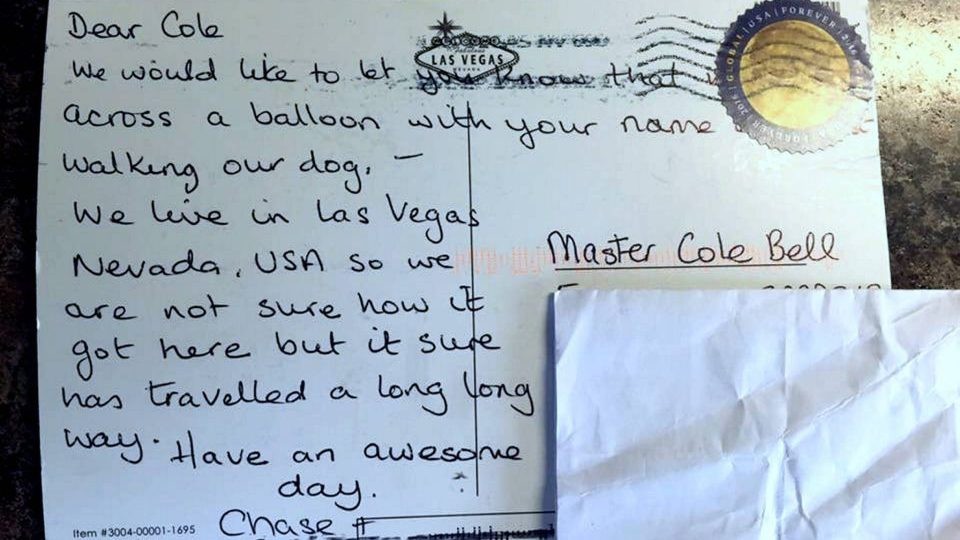 Dear Cole
We would like to let you know that
across a balloon with your name
walking our dog. –
We live in Las Vegas
Nevada, USA so we
are not sure how it
got here but it sure
has travelled a long long
way. Have an awesome
day.
Chase
LAS VEGAS
GLOBAL | USA | FOREVER
Master Cole Bell
Item #3004-00001-1695